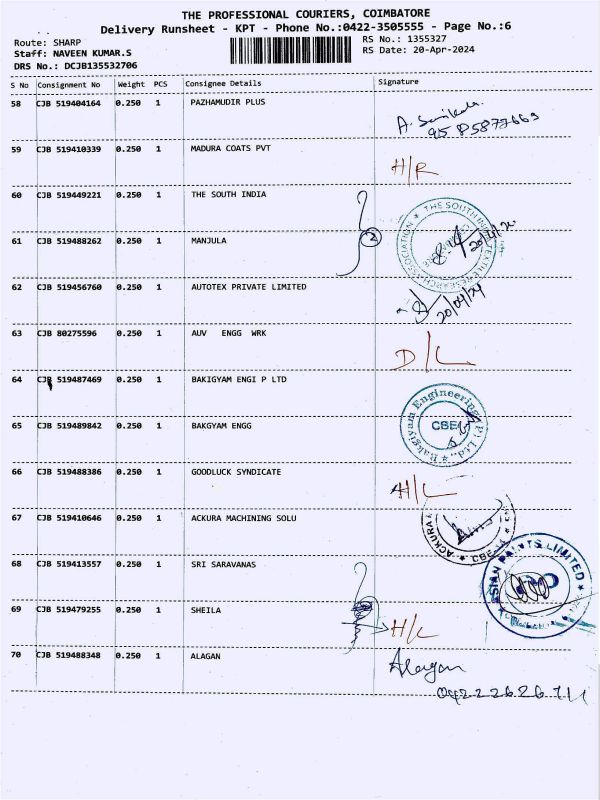 THE PROFESSIONAL COURIERS, COIMBATORE
Delivery Runsheet - KPT - Phone No.:0422-3505555 - Page No.:6
Route: SHARP
RS No.: 1355327
Staff: NAVEEN KUMAR.S
RS Date: 20-Apr-2024
DRS No.: DCJB135532706
S No Consignment No Weight PCS Consignee Details Signature
58 CJB 519404164 0.250 1 PAZHAMUDIR PLUS
59 CJB 519410339 0.250 1 MADURA COATS PVT H/R
60 CJB 519449221 0.250 1 THE SOUTH INDIA
61 CJB 519488262 0.250 1 MANJULA 2
62 CJB 519456760 0.250 1 AUTOTEX PRIVATE LIMITED 20/04/24
63 CJB 80275596 0.250 1 AUV ENGG WRK D/L
64 CJB 519487469 0.250 1 BAKIGYAM ENGI P LTD
Bakgiyam Engineering (P) Ltd.,
CBE
65 CJB 519489842 0.250 1 BAKGYAM ENGG
66 CJB 519488386 0.250 1 GOODLUCK SYNDICATE H/L
67 CJB 519410646 0.250 1 ACKURA MACHINING SOLU
ACKURA
68 CJB 519413557 0.250 1 SRI SARAVANAS
ASIAN PAINTS LIMITED
69 CJB 519479255 0.250 1 SHEILA H/L
70 CJB 519488348 0.250 1 ALAGAN Alagan